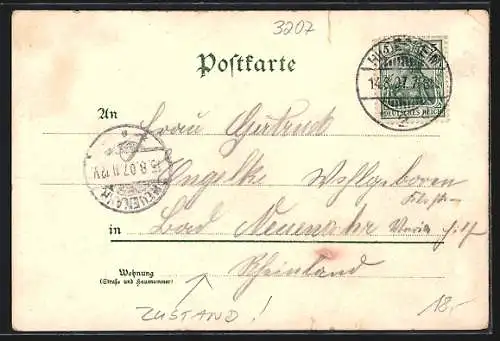 3207
Postkarte
HILDESHEIM
14.8.07.7-8
DEUTSCHES REICH
An
Frau Gertrud
Engelke Wohlgeboren
15.8.07.11-12V
in
Bad Neuenahr
Rheinland
Wohnung
(Straße und Hausnummer)
ZUSTAND!
18,-